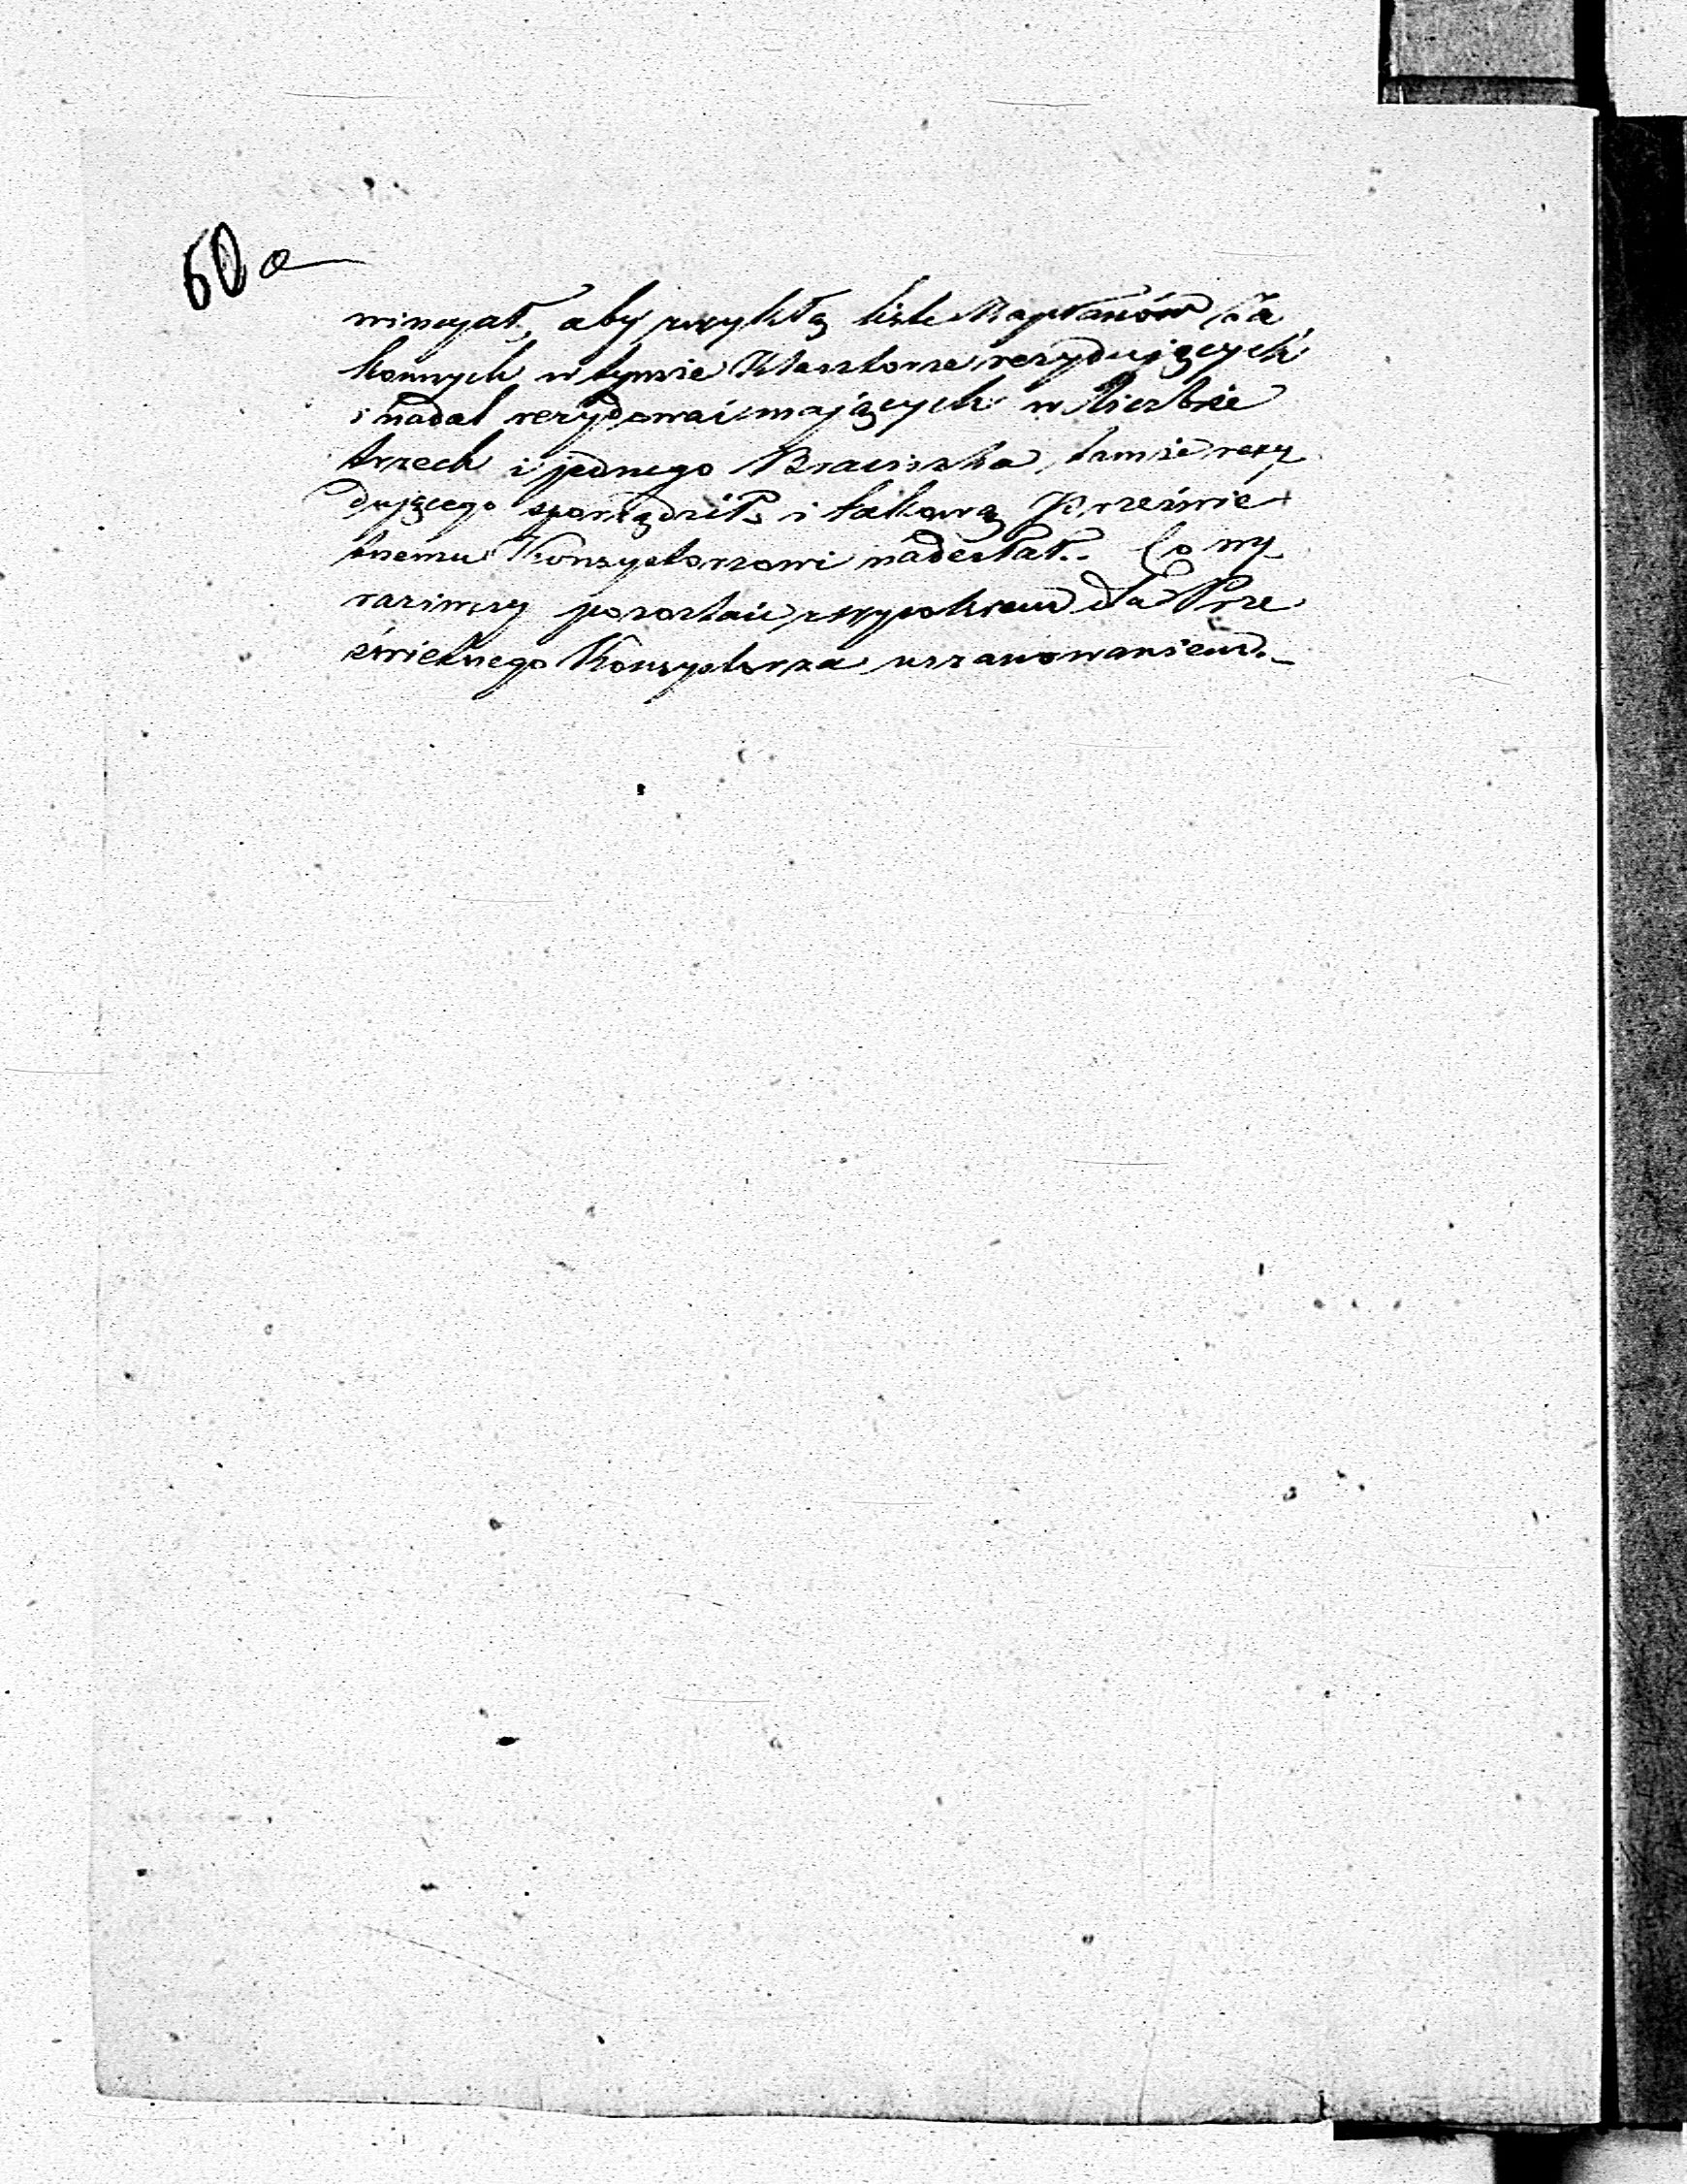 60 a
wincyał, aby zwykłą listę Kapłanów Za
konnych w tymże Klasztorze rezydujących
i nadal rezydować mających w liczbie
trzech i jednego Braciszka, tamże rezy
dującego sporządził, i takową Prześwie
tnemu Konsystorzowi nadesłał. Co wy
raziwszy pozostaię z wysokiem dla Prze
świetnego Konsystorza uszanowaniem.